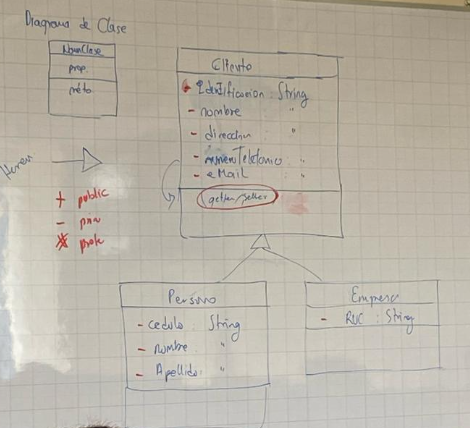 Diagrama de Clase
NomClase
prop.
méto.
Heren
+ public
- priv
* prote
Cliente
* Identificacion : String
- nombre "
- direccion "
- numeroTelefonico "
- eMail : "
getter/setter
Persona
- cedula : String
- nombre : "
- Apellido: "
Empresa
- RUC : String